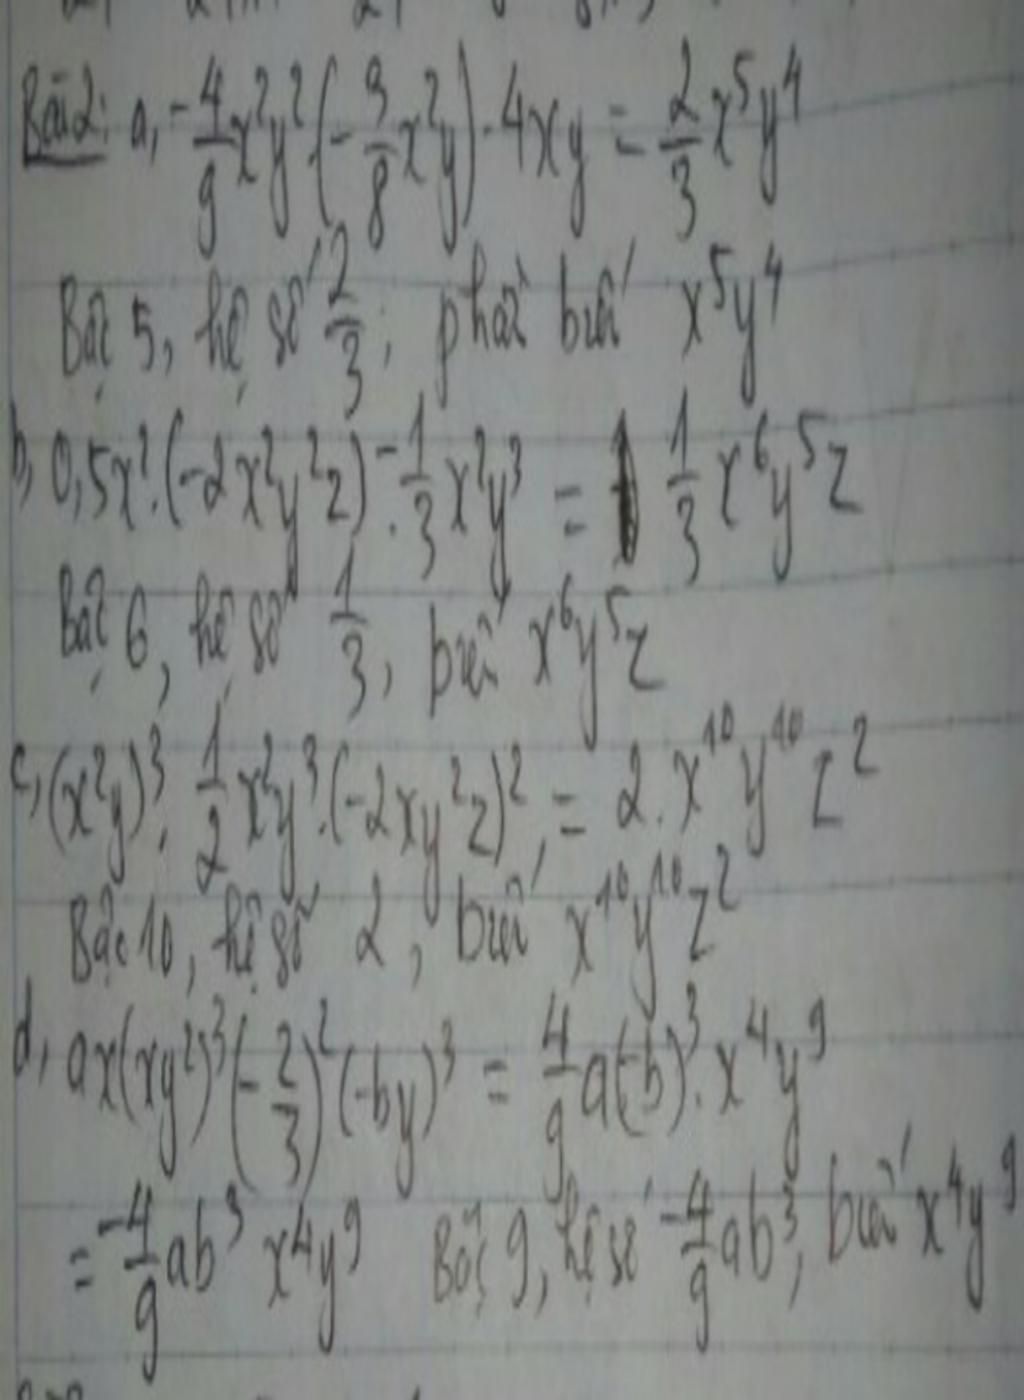 Bài 2: a, -4/9 x²y².(-3/8 x²y).4xy = 2/3 x⁵y⁴
Bậc 5, hệ số 2/3; phần biến x⁵y⁴
b, 0,5x².(-2x²y²z).-1/3 x²y³ = 1/3 x⁶y⁵z
Bậc 6, hệ số 1/3, biến x⁶y⁵z
c, (x²y)³.1/2 x²y³.(-2xy²z)² = 2.x¹⁰y¹⁰z²
Bậc 10, hệ số 2, biến x¹⁰y¹⁰z²
d, ax(xy²)³(-2/3)²(-by)³ = 4/9 a(-b)³.x⁴y⁹
= -4/9 ab³ x⁴y⁹ Bậc 9, hệ số -4/9 ab³, biến x⁴y⁹